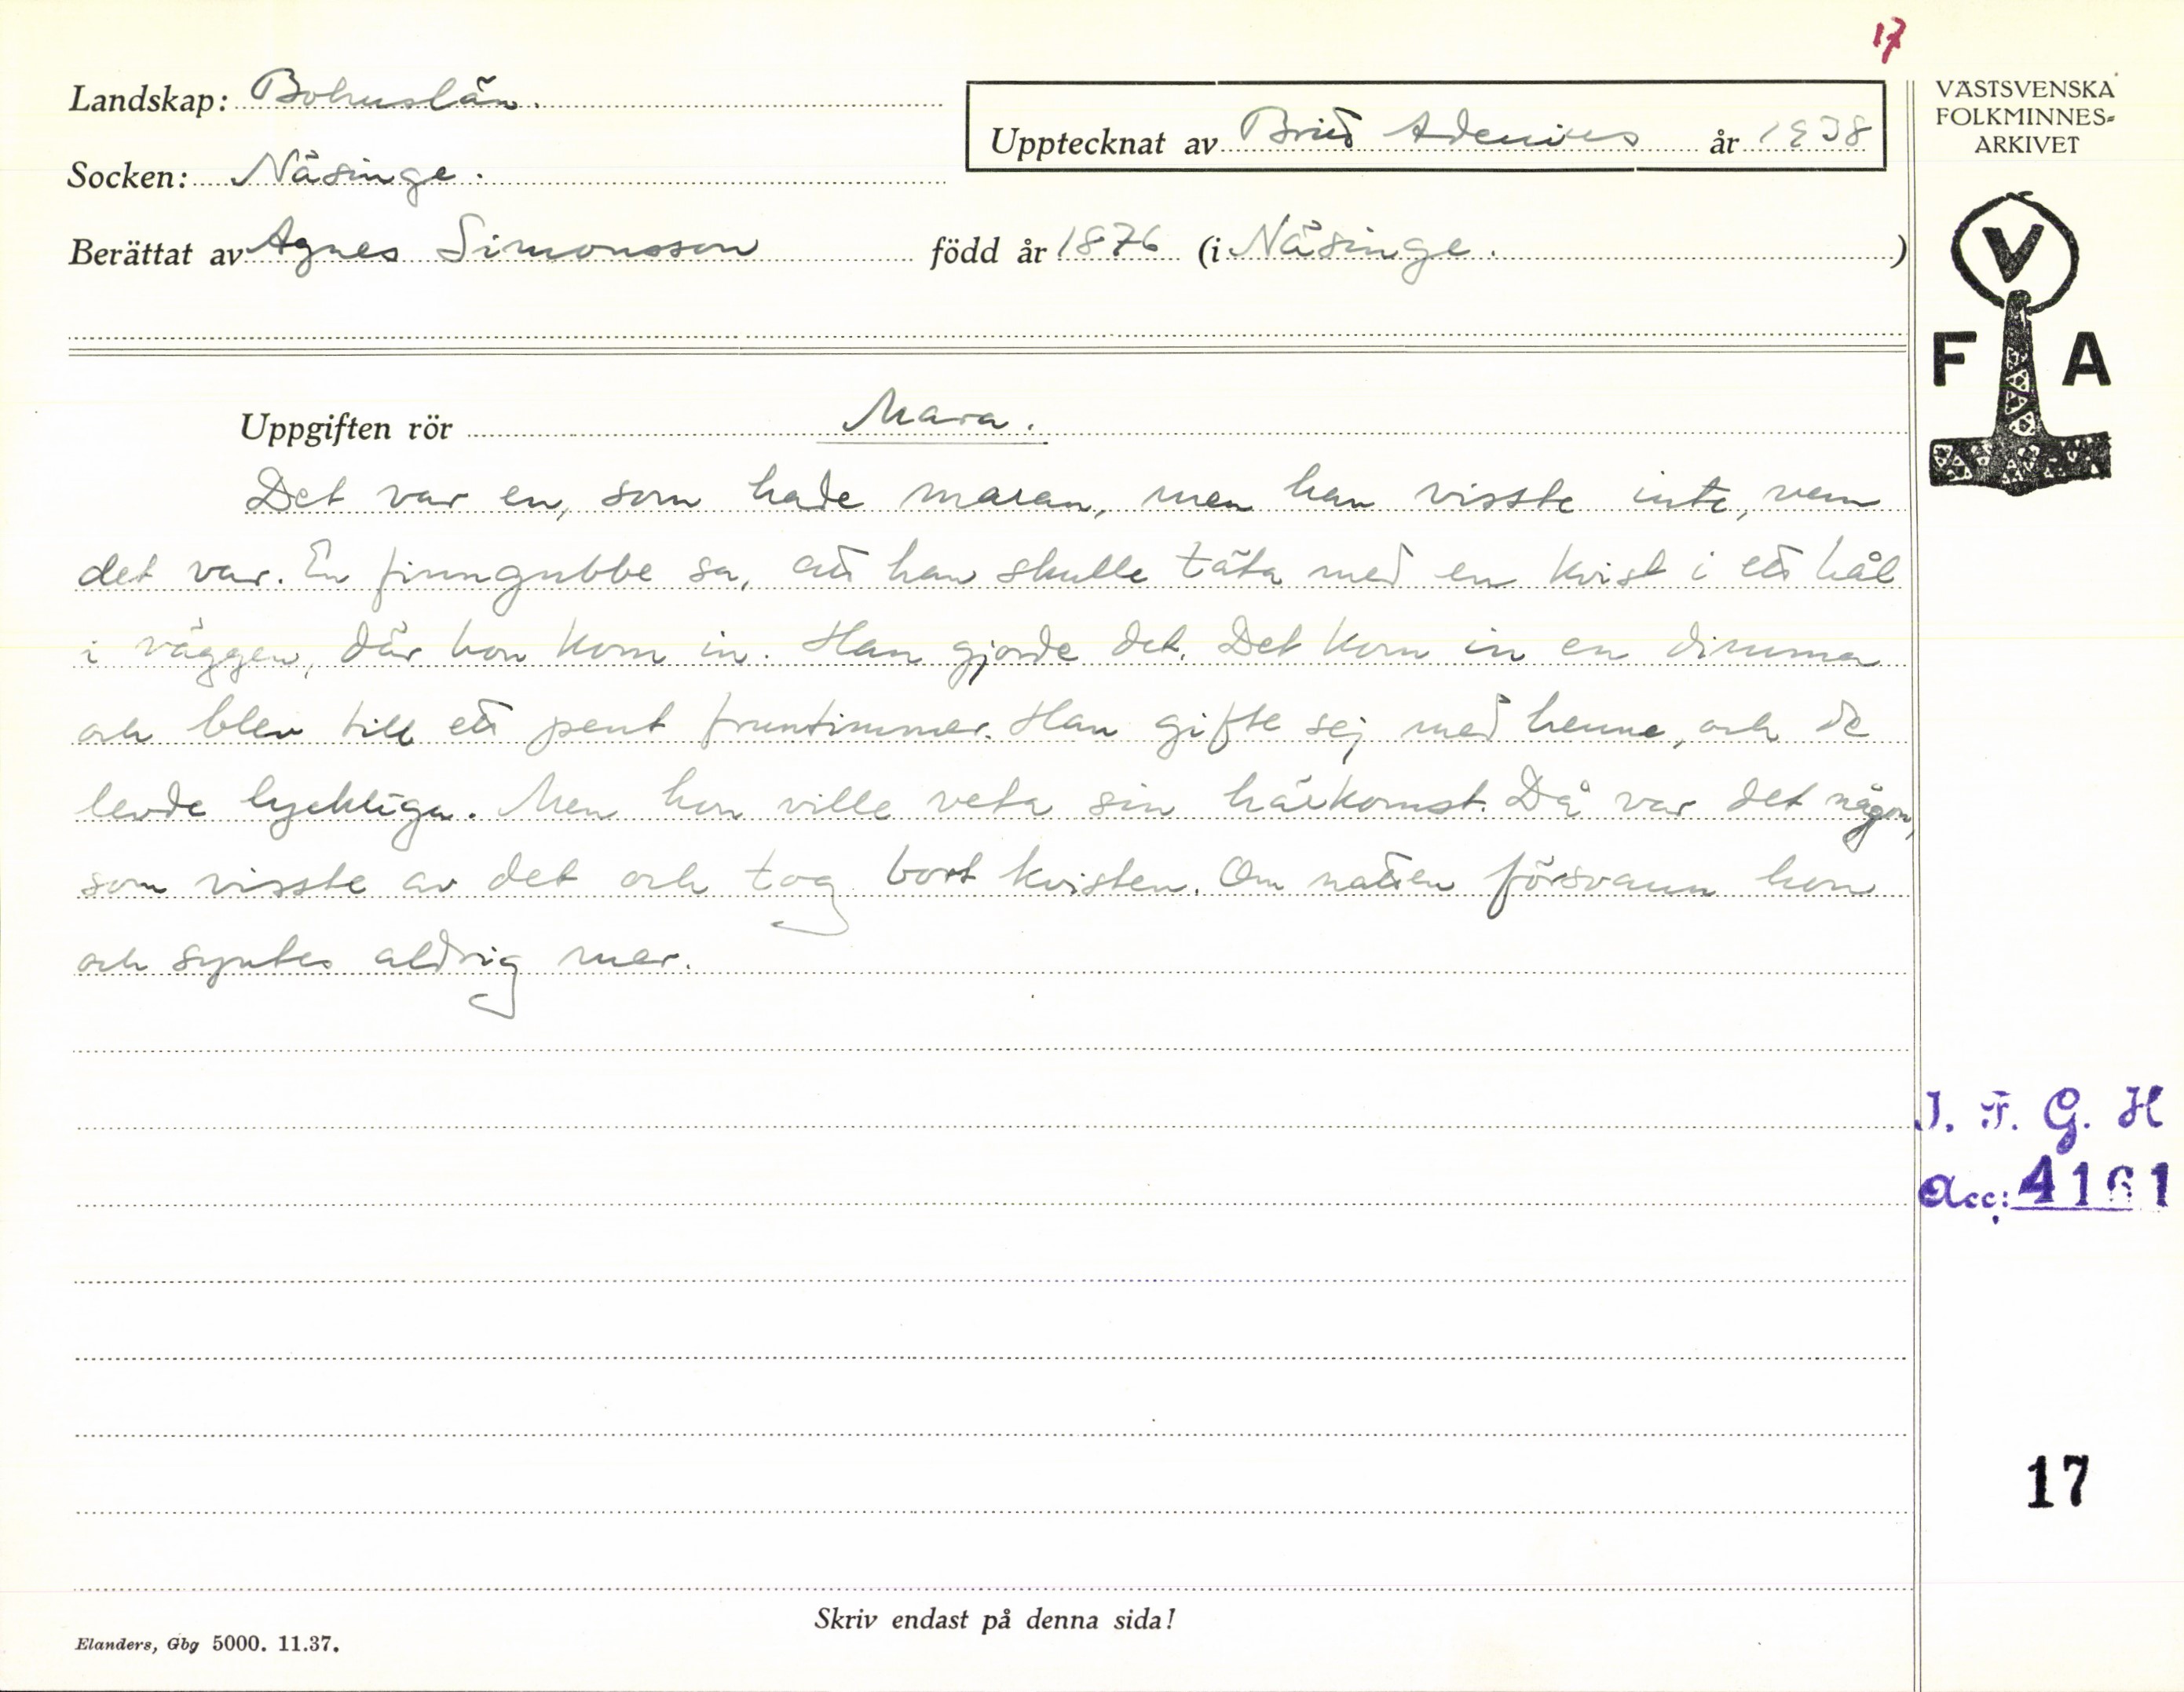 17
Landskap: Bohuslän.
Upptecknat av Britt Adenius år 1938
VÄSTSVENSKA
FOLKMINNES=
ARKIVET
Socken: Näsinge.
Berättat av Agnes Simonsson född år 1876 (i Näsinge.)
V
F A
Uppgiften rör Mara.
Det var en, som hade maran, men han visste inte, vem
det var. En finngubbe sa, att han skulle täta med en kvist i ett hål
i väggen, där hon kom in. Han gjorde det. Det kom in en dimma
och blev till ett pent fruntimmer. Han gifte sej med henne, och de
levde lyckliga. Men hon ville veta sin härkomst. Då var det någon,
som visste av det och tog bort kvisten. Om natten försvann hon
och syntes aldrig mer.
I. F. G. H
Acc: 4161
17
Skriv endast på denna sida!
Elanders, Gbg 5000. 11.37.